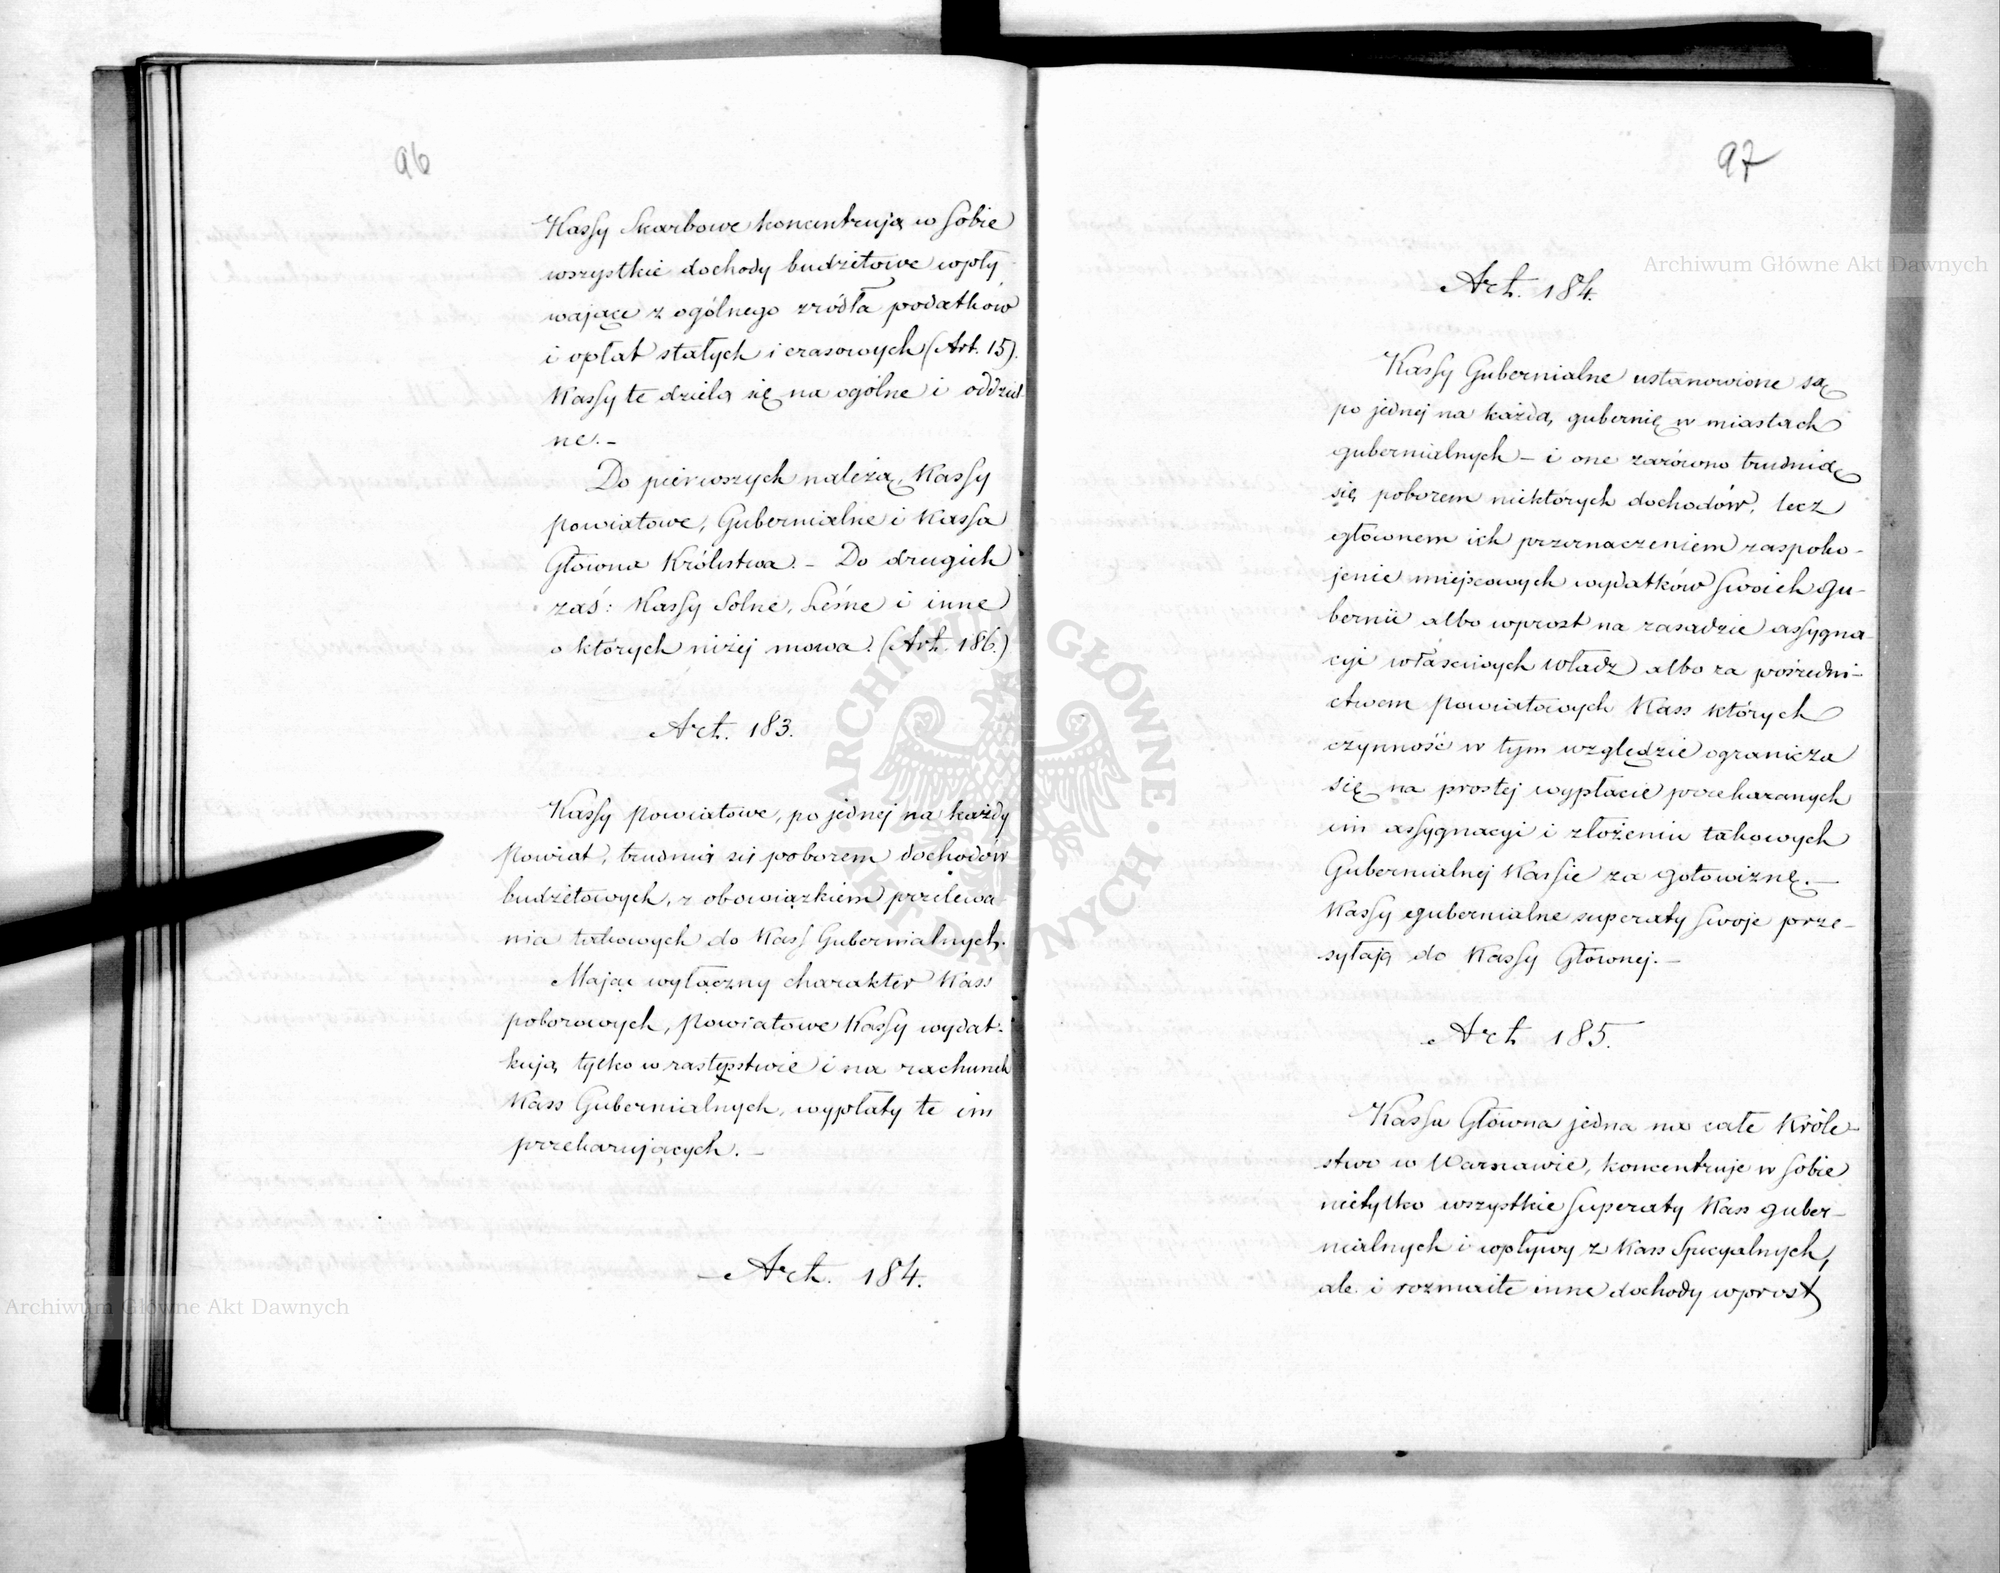 96
Kassy Skarbowe koncentrują w sobie
wszystkie dochody budżetowe wpły
wające z ogólnego źródła podatków
i opłat stałych i czasowych (Art. 15).
Kassy te dzielą się na ogólne i oddziel
ne. –
Do pierwszych należą, Kassy
powiatowe, Gubernialne i Kassa
Główna Królestwa. – Do drugich
zaś: Kassy Solne, Leśne i inne
o których niżej mowa. (Art. 186.)
Art. 183.
Kassy Powiatowe, po jednej na każdy
Powiat, trudnią się poborem dochodów
budżetowych, z obowiązkiem przelewa
nia takowych do Kass Gubernialnych.
Mając wyłączny charakter Kass
poborowych, Powiatowe Kassy wydat-
kują tylko w zastępstwie i na rachunek
Kass Gubernialnych, wypłaty te im
przekazujących. –
Art. 184.
97
Art. 184.
Kassy Gubernialne ustanowione są
po jednej na każdą gubernię w miastach
gubernialnych – i one zarówno trudnią
się poborem niektórych dochodów, lecz
głównem ich przeznaczeniem zaspoko-
jenie miejscowych wydatków swoich gu-
bernii albo wprost na zasadzie assygna-
cyi właściwych władz albo za pośredni-
ctwem Powiatowych Kass których
czynność w tym względzie ogranicza
się na prostej wypłacie przekazanych
im assygnacyi i złożeniu takowych
Gubernialnej Kassie za gotowiznę. –
Kassy gubernialne superaty swoje prze-
syłają do Kassy Głównej. –
Art 185.
Kassa Główna jedna na całe Króle-
stwo w Warszawie, koncentruje w sobie
nietylko wszystkie superaty Kass guber-
nialnych i wpływy z Kass Specyalnych,
ale i rozmaite inne dochody wprost
Archiwum Główne Akt Dawnych
Archiwum Główne Akt Dawnych
ARCHIWUM GŁÓWNE AKT DAWNYCH